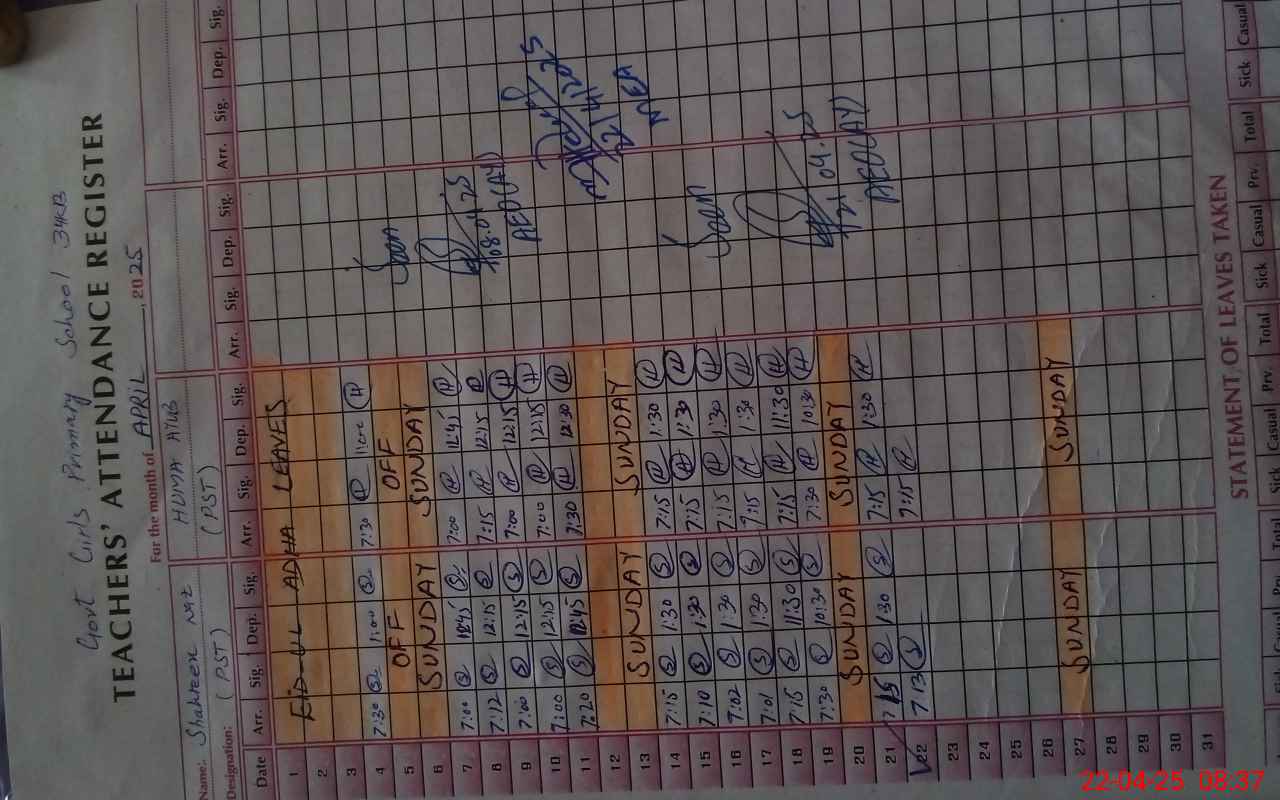 Govt Girls Primary School 34KB
TEACHERS' ATTENDANCE REGISTER
For the month of APRIL, 2025
Name: Shahreen Naz HUMA AYUB
Designation: (PST) (PST)
Date Arr. Sig. Dep. Sig. Arr. Sig. Dep. Sig. Arr. Sig. Dep. Sig. Arr. Sig. Dep. Sig.
1 EID-UL ADHA LEAVES
2
3 7:30 1:00 7:30 11:00
4 OFF OFF
5
6 SUNDAY SUNDAY
7 7:00 12:45 7:00 12:45
8 7:12 12:15 7:15 12:15
9 7:00 12:15 7:00 12:15
10 7:00 12:15 7:00 12:15
11 7:20 12:45 7:30 12:30
12
13 SUNDAY SUNDAY
14 7:15 1:30 7:15 1:30
15 7:10 1:30 7:15 1:30
16 7:02 1:30 7:15 1:30
17 7:01 1:30 7:15 1:30
18 7:15 11:30 7:15 11:30
19 7:30 10:30 7:30 10:30
20 SUNDAY SUNDAY
21 7:15 1:30 7:15 1:30
22 7:13 7:15
23
24
25
26
27 SUNDAY SUNDAY
28
29
30
31
Seen
08.04.25
21/4/2025
MEA
Seen
21.04.25
STATEMENT OF LEAVES TAKEN
Sick Casual Prv. Total Sick Casual Prv. Total Sick Casual
22-04-25 08:37